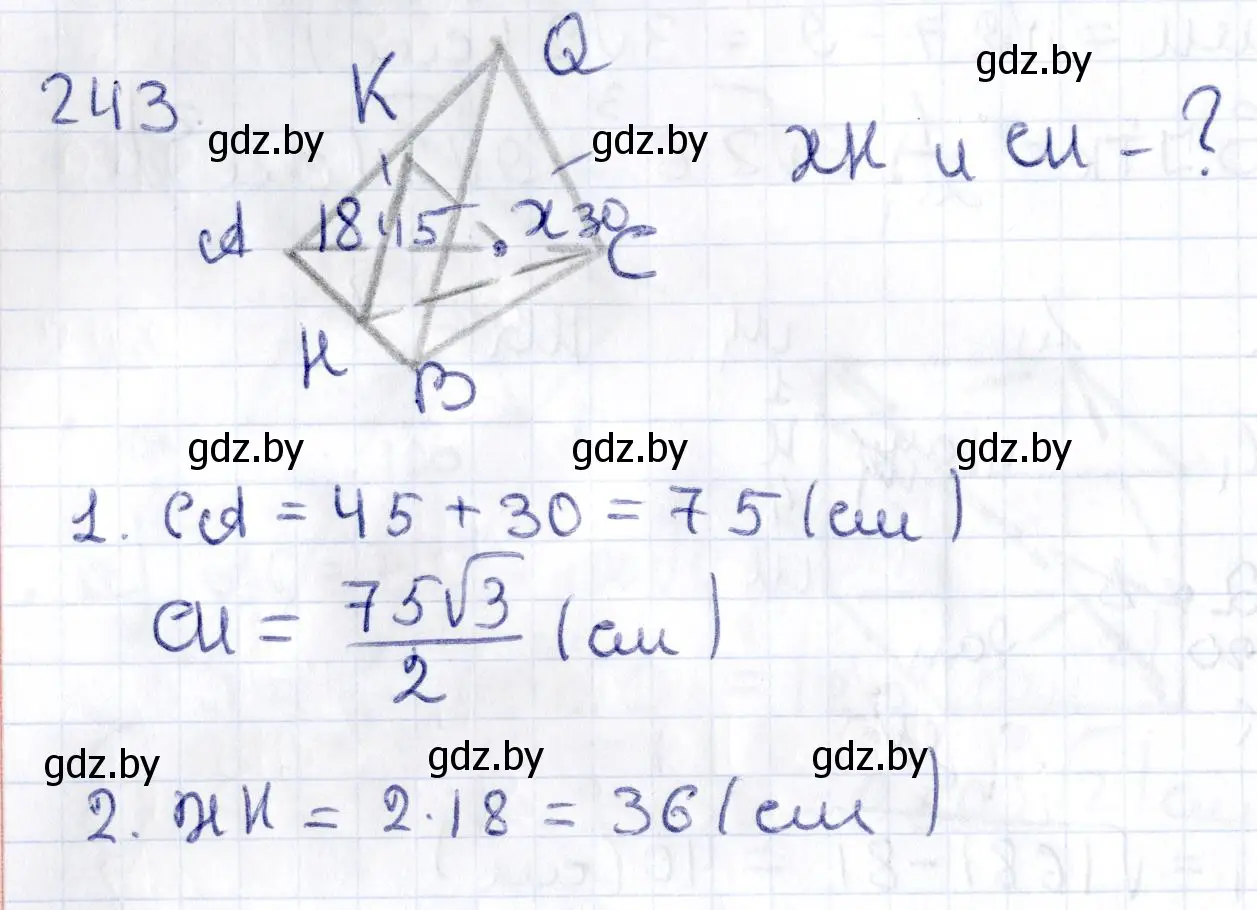 243.
K
Q
gdz.by
gdz.by
gdz.by
жк и см - ?
A
18 45
x 30
C
H
B
gdz.by
gdz.by
gdz.by
1. CA = 45 + 30 = 75 (см)
см = 75√3/2 (см)
gdz.by
gdz.by
gdz.by
2. жк = 2·18 = 36 (см)